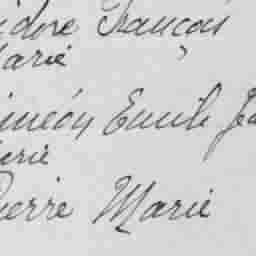 idore François
Marie
iméon Emile Je
arie
Pierre Marie